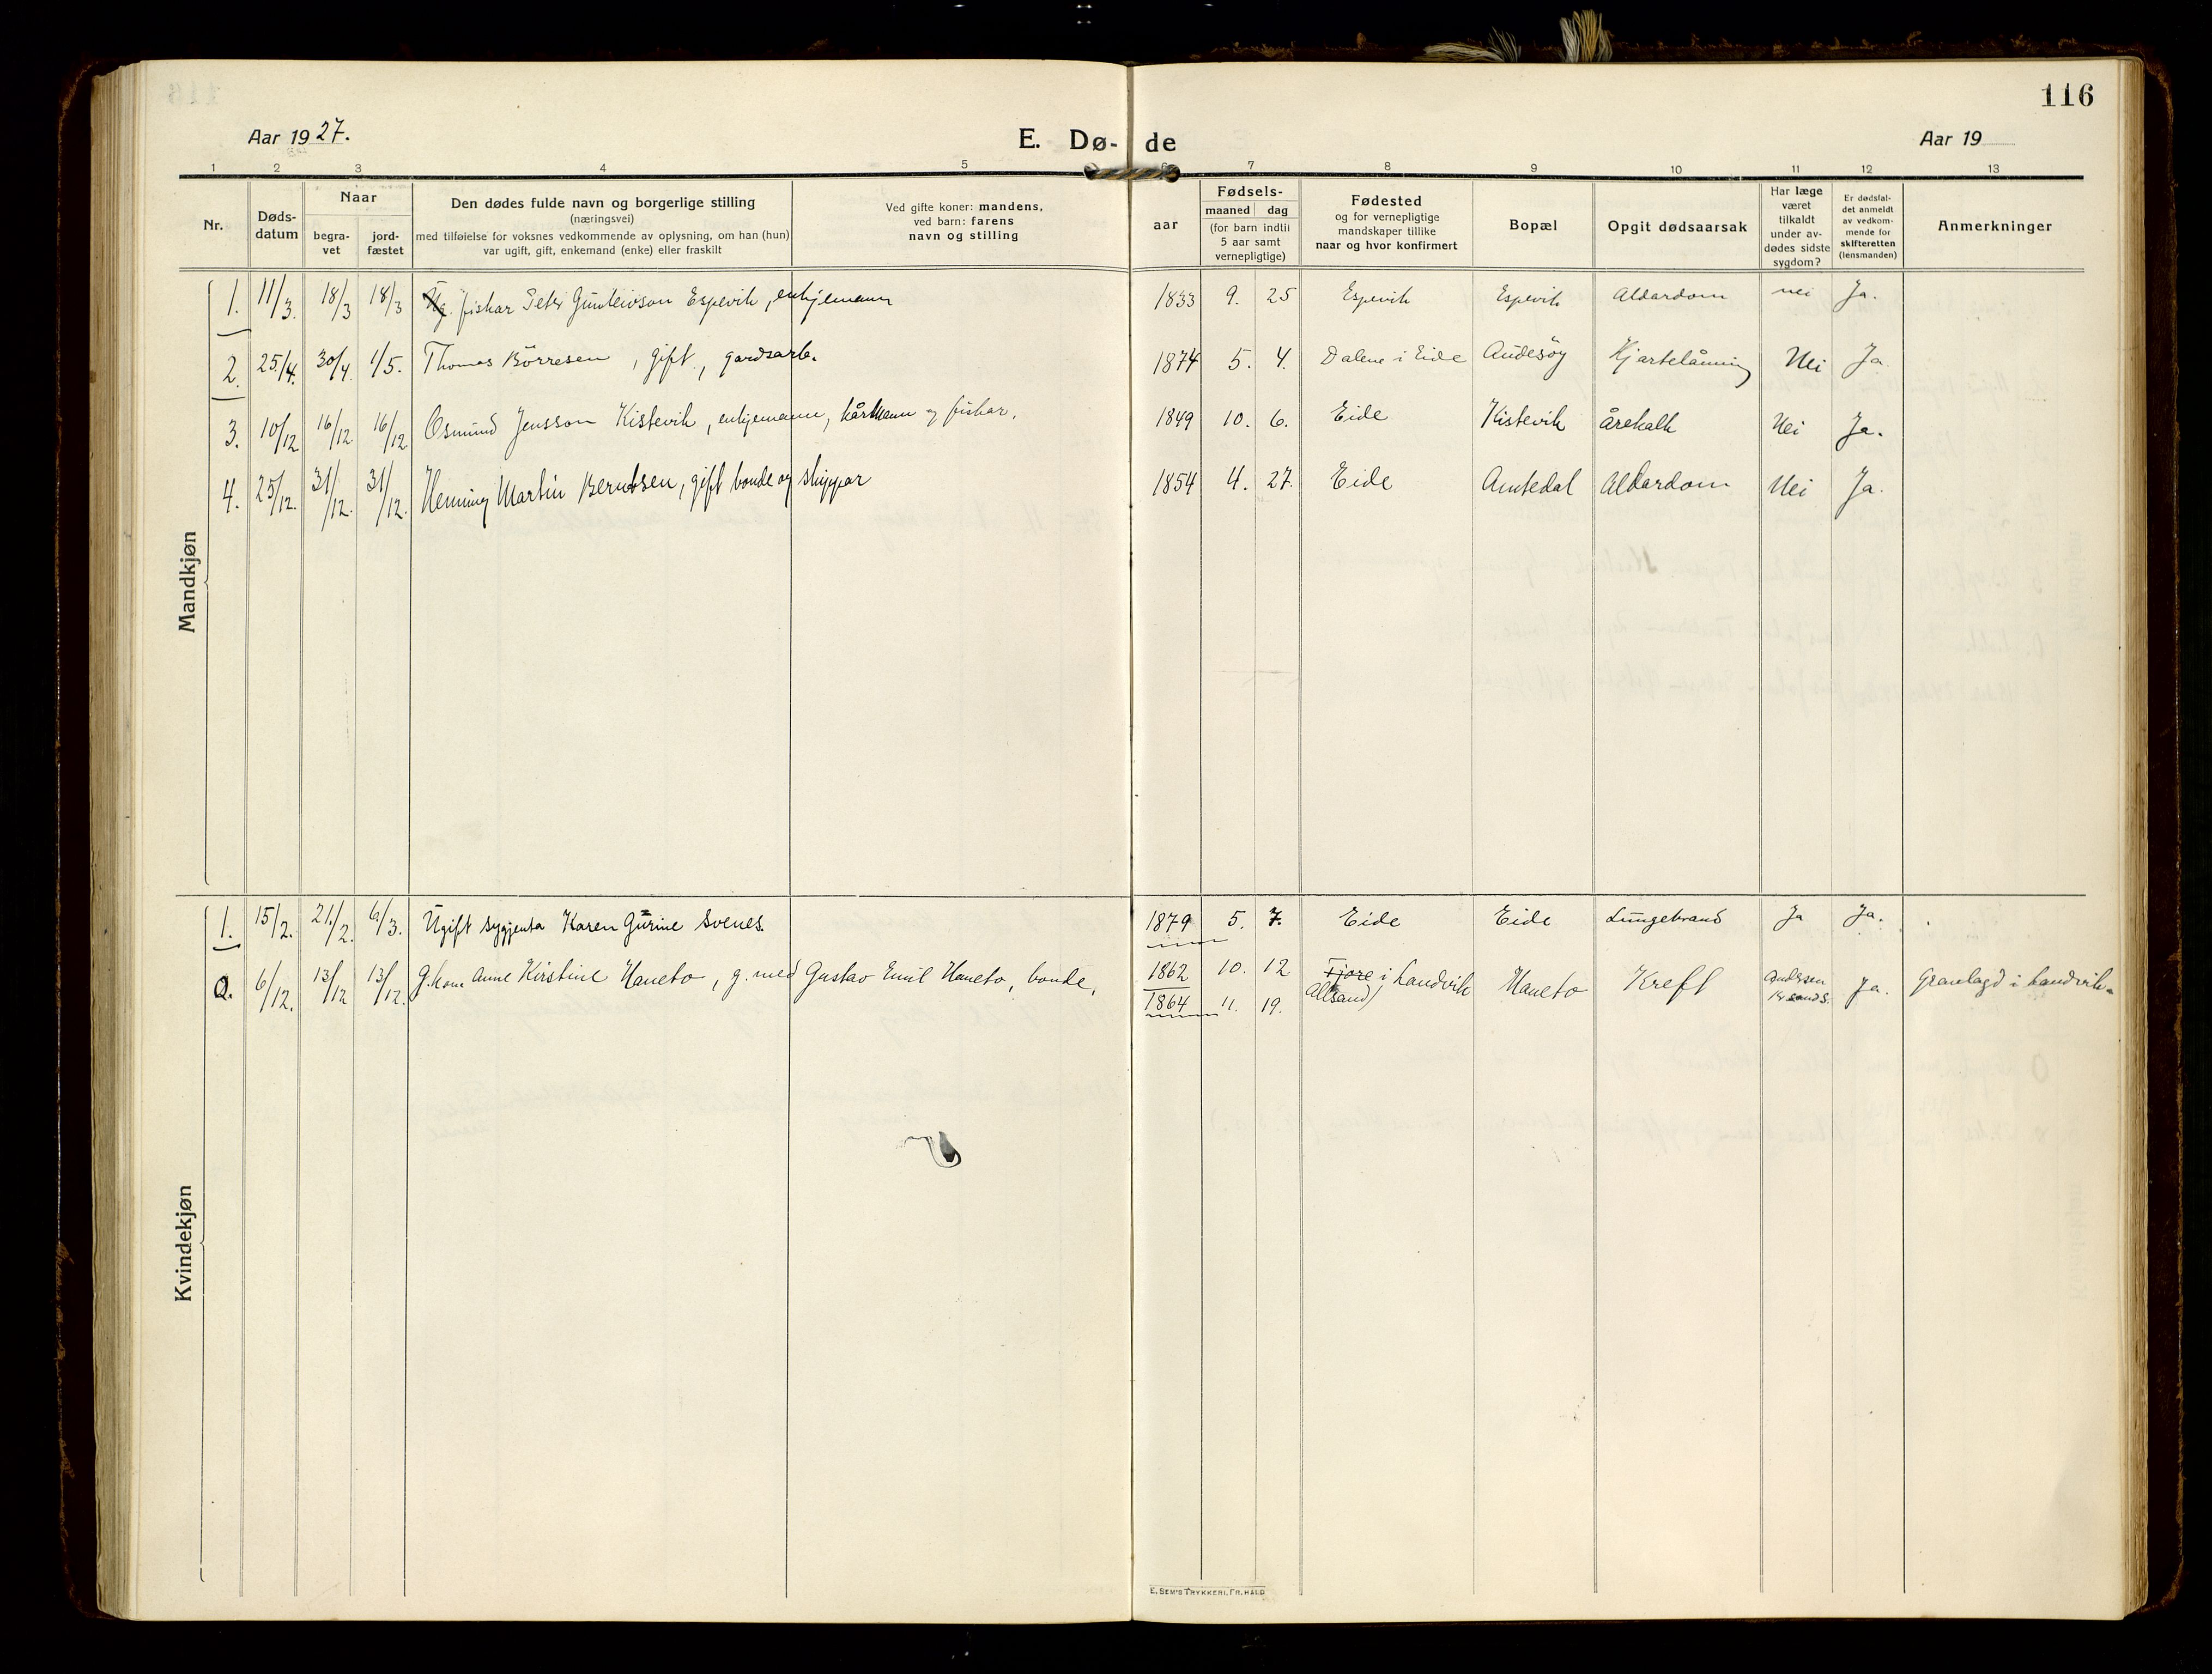 116
Aar 1927.
E. Dø- de
Aar 19
1 2 3 4 5 6 7 8 9 10 11 12 13
Nr.
Døds-
datum
Naar
begra-
vet
jord-
fæstet
Den dødes fulde navn og borgerlige stilling
(næringsvei)
med tilføielse for voksnes vedkommende av oplysning, om han (hun)
var ugift, gift, enkemand (enke) eller fraskilt
Ved gifte koner: mandens,
ved barn: farens
navn og stilling
Fødsels-
aar
maaned dag
(for barn indtil
5 aar samt
vernepligtige)
Fødested
og for vernepligtige
mandskaper tillike
naar og hvor konfirmert
Bopæl
Opgit dødsaarsak
Har læge
været
tilkaldt
under av-
dødes sidste
sygdom?
Er dødsfal-
det anmeldt
av vedkom-
mende for
skifteretten
(lensmanden)
Anmerkninger
Mandkjøn
1. 11/3. 18/3 18/3 fiskar Peter Gunleivson Espevik, enkjemann 1833 9. 25 Espevik Espevik Aldardom nei Ja.
2. 25/4. 30/4. 1/5. Thomas Börresen, gift, gardsarb. 1874 5. 4. Dalene i Eide Audesöy Hjartelåming Nei Ja.
3. 10/12 16/12. 16/12. Osmund Jensson Kistevik, enkjemann, kårmann og fiskar. 1849 10. 6. Eide Kistevik Årekalk Nei Ja.
4. 25/12. 31/12. 31/12. Henning Martin Berntsen, gift bonde og skippar 1854 4. 27. Eide Amtedal Aldardom Nei Ja.
Kvindekjøn
1. 15/2. 21./2. 6/3. Ugift sygjenta Karen Gurine Svenes. 1879 5. 7. Eide Eide Lungebrand Ja Ja.
2. 6/12. 13/12 13/12. G. kone Anne Kirstine Haneto, g. med Gustav Emil Haneto, bonde, 1862 10. 12 Fjære i Landvik Haneto Kreft Andersen Ja. Gravlagd i Landvik.
1864 11. 19. Allsand) Kr.sands.
E. SEM'S TRYKKERI, FR.HALD